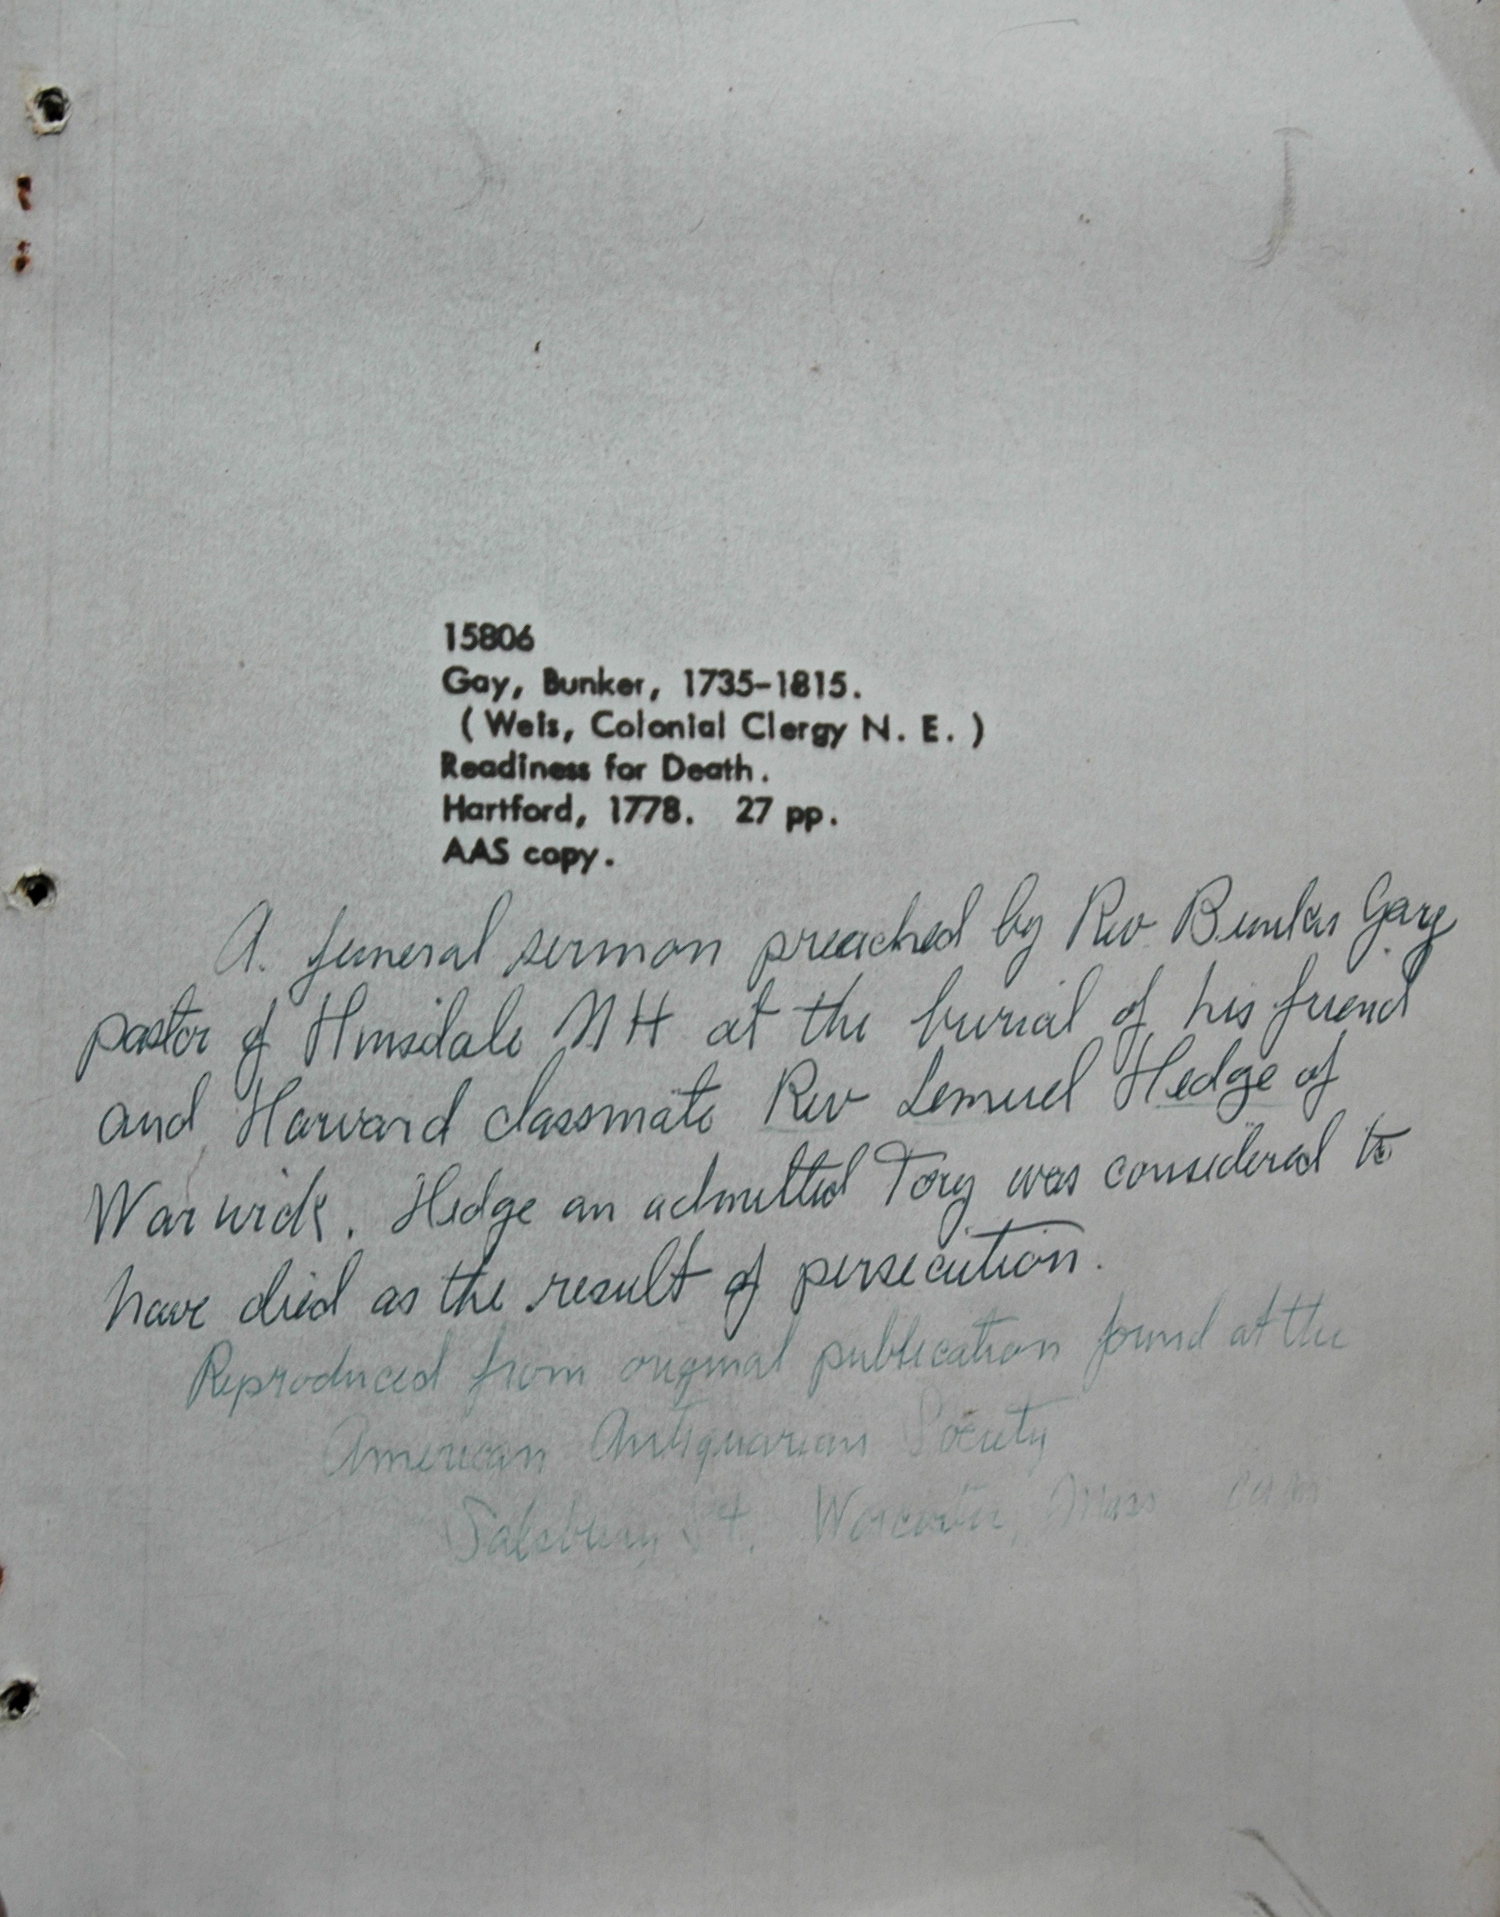 15806
Gay, Bunker, 1735-1815.
( Weis, Colonial Clergy N. E. )
Readiness for Death.
Hartford, 1778. 27 pp.
AAS copy.
A funeral sermon preached by Rev. Bunker Gay
pastor of Hinsdale NH at the burial of his friend
and Harvard classmate Rev Lemuel Hedge of
Warwick. Hedge an admitted Tory was considered to
have died as the result of persecution.
Reproduced from original publication found at the
American Antiquarian Society
Salsbury St. Worcester, Mass